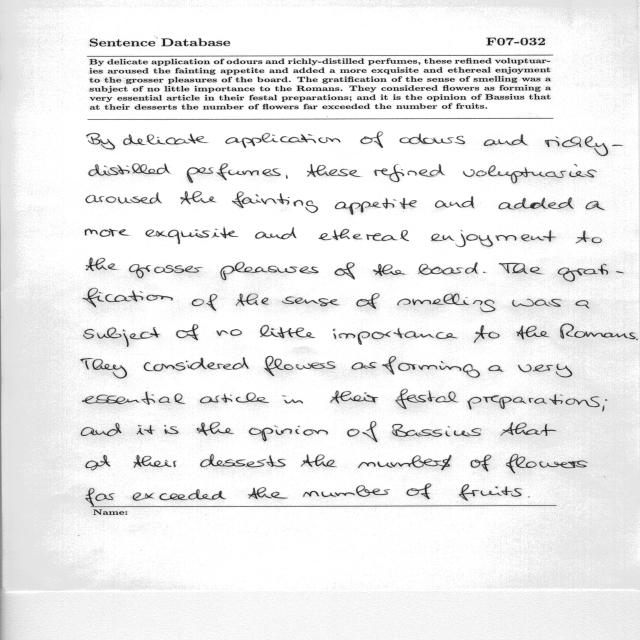 Sentence Database F07-032
By delicate application of odours and richly-distilled perfumes, these refined voluptuar-
ies aroused the fainting appetite and added a more exquisite and ethereal enjoyment
to the grosser pleasures of the board. The gratification of the sense of smelling was a
subject of no little importance to the Romans. They considered flowers as forming a
very essential article in their festal preparations; and it is the opinion of Bassius that
at their desserts the number of flowers far exceeded the number of fruits.
By delicate application of odours and richly-
distilled perfumes, these refined voluptuaries
aroused the fainting appetite and added a
more exquisite and ethereal enjoyment to
the grosser pleasures of the board. The grati-
fication of the sense of smelling was a
subject of no little importance to the Romans.
They considered flowers as forming a very
essential article in their festal preparations;
and it is the opinion of Bassius that
at their desserts the number of flowers
far exceeded the number of fruits.
Name: